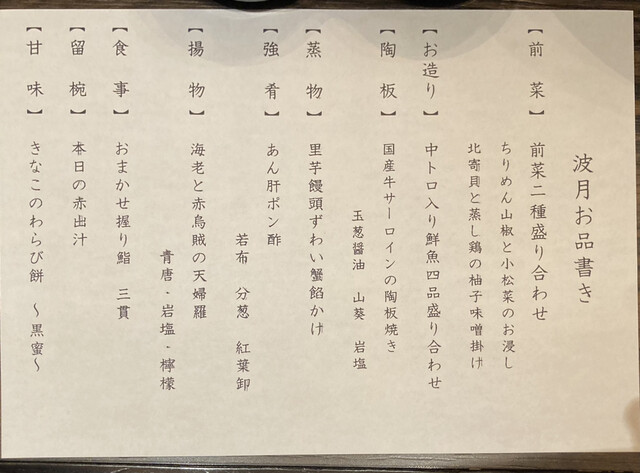 波月お品書き
【前菜】 前菜二種盛り合わせ
ちりめん山椒と小松菜のお浸し
北寄貝と蒸し鶏の柚子味噌掛け
【お造り】 中トロ入り鮮魚四品盛り合わせ
【陶板】 国産牛サーロインの陶板焼き
玉葱醤油 山葵 岩塩
【蒸物】 里芋饅頭ずわい蟹餡かけ
【強肴】 あん肝ポン酢
若布 分葱 紅葉卸
【揚物】 海老と赤烏賊の天婦羅
青唐・岩塩・檸檬
【食事】 おまかせ握り鮨 三貫
【留椀】 本日の赤出汁
【甘味】 きなこのわらび餅 ～黒蜜～